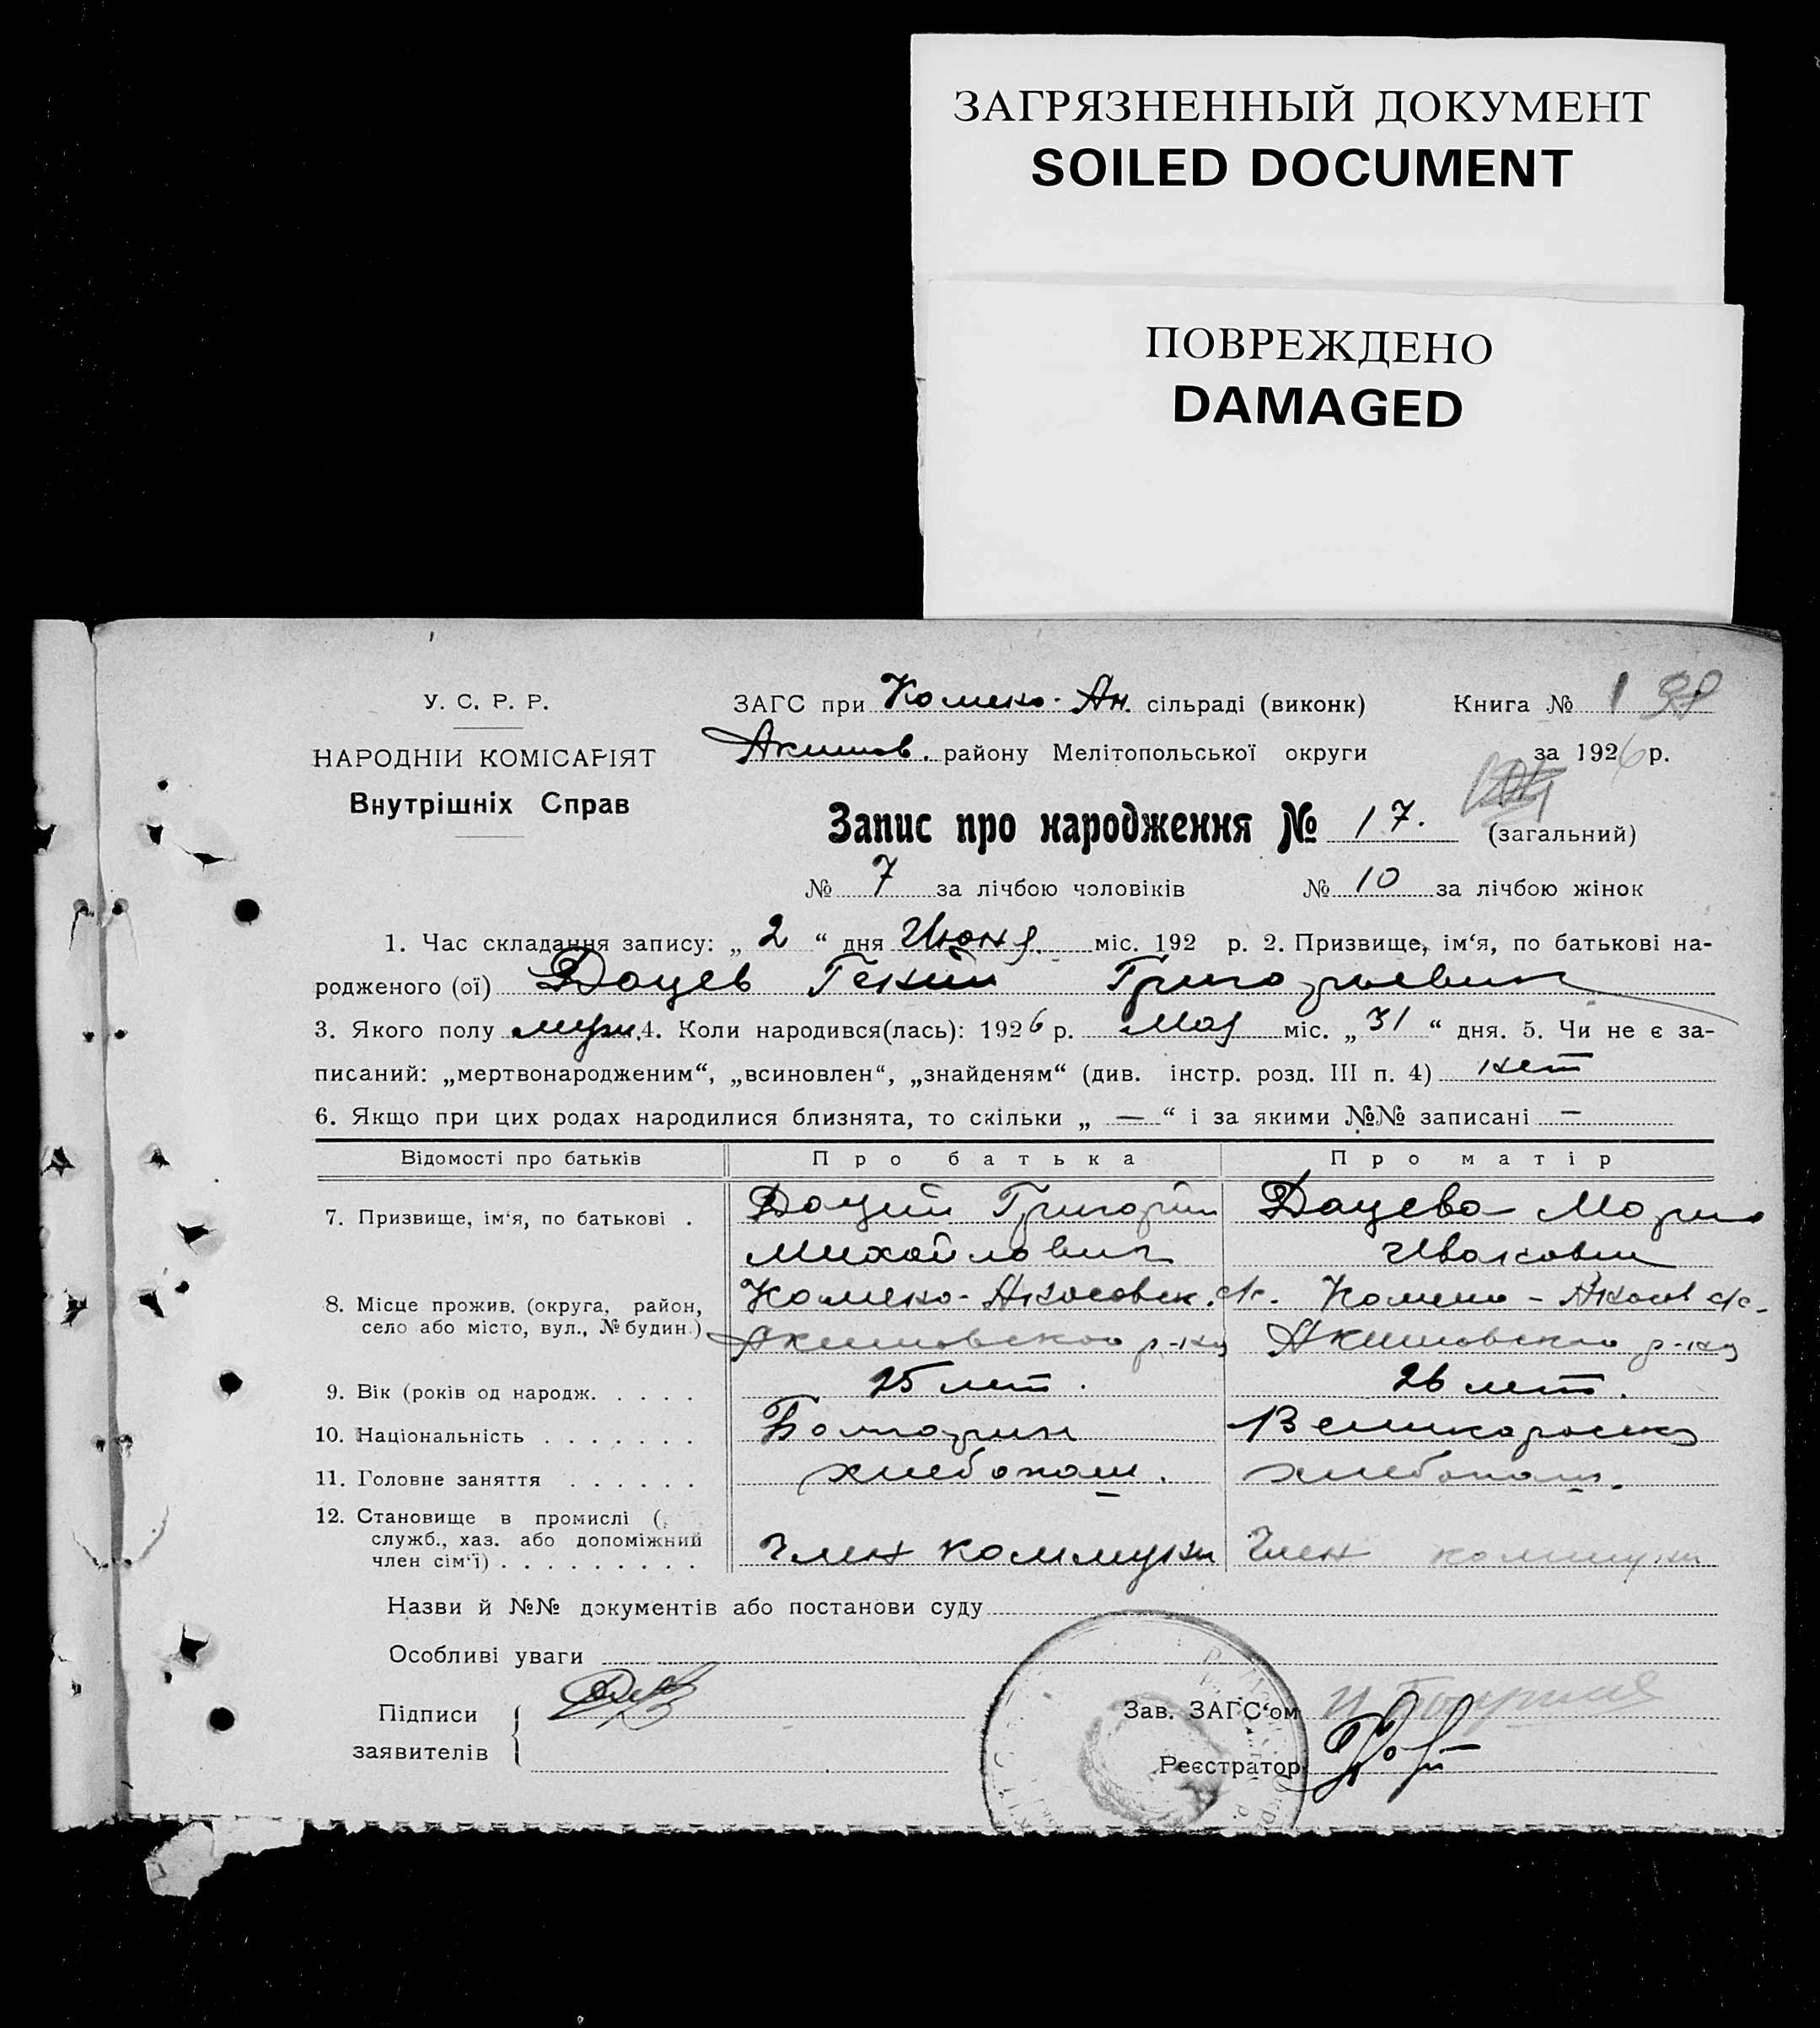 ЗАГРЯЗНЕННЫЙ ДОКУМЕНТ
SOILED DOCUMENT
ПОВРЕЖДЕНО
DAMAGED
У. С. Р. Р.
НАРОДНІЙ КОМІСАРІЯТ
Внутрішніх Справ
ЗАГС при Комско-Ан. сільраді (виконк) Книга № 1
Акимов. району Мелітопольської округи за 1926 р.
Запис про народження № 17. (загальний)
№ 7 за лічбою чоловіків № 10 за лічбою жінок
1. Час складання запису: „ 2 “ дня Июня міс. 192 р. 2. Призвище, ім‘я, по батькові на-
родженого (ої) Дацев Гений Григорьевич
3. Якого полу муж. 4. Коли народився(лась): 1926 р. Мая міс. „ 31 “ дня. 5. Чи не є за-
писаний: „мертвонародженим“, „всиновлен“, „знайденям“ (див. інстр. розд. III п. 4) нет
6. Якщо при цих родах народилися близнята, то скільки „ — “ і за якими №№ записані —
Відомості про батьків Про батька Про матір
7. Призвище, ім‘я, по батькові . Даций Григорий Дацева Мария
Михайлович Ивановн
8. Місце прожив. (округа, район, с/с. с/с.
село або місто, вул., № будин.) Акимовского р-на Акимовского р-на
9. Вік (років од народж. . . . . 25 лет. 26 лет.
10. Національність . . . . . . . Болгарин Великороска
11. Головне заняття . . . . . . хлебопаш. хлебопаш.
12. Становище в промислі (
служб., хаз. або допоміжний
член сім‘ї) . . . . . . . . . Член коммуны Член коммуны
Назви й №№ документів або постанови суду
Особливі уваги
Підписи
заявителів
Зав. ЗАГС‘ом
Реєстратор